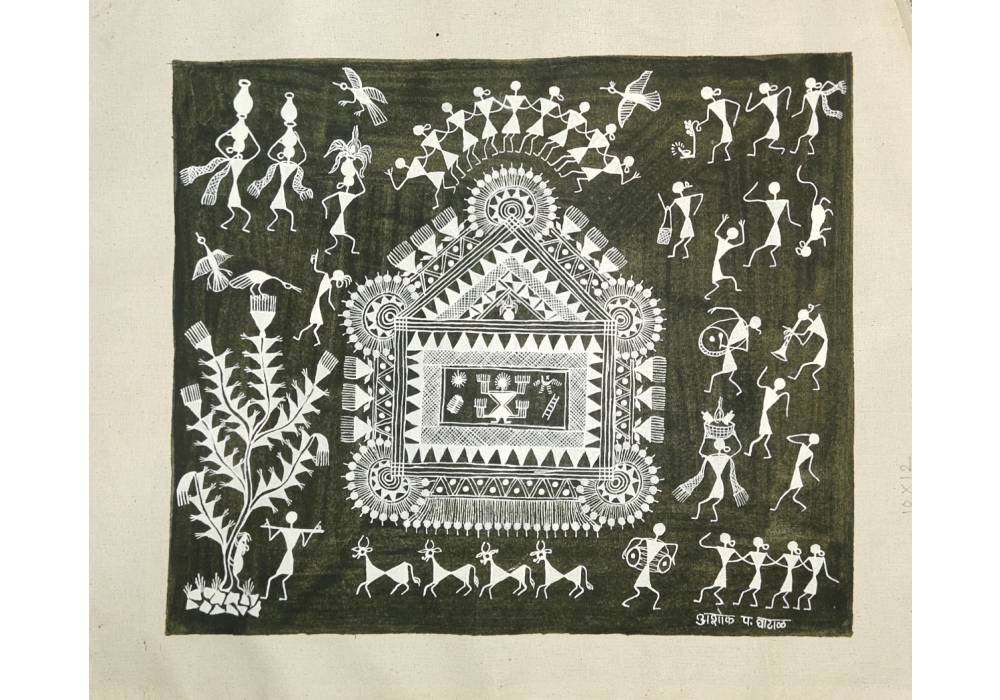 अशोक प. घाटाळ
10X12